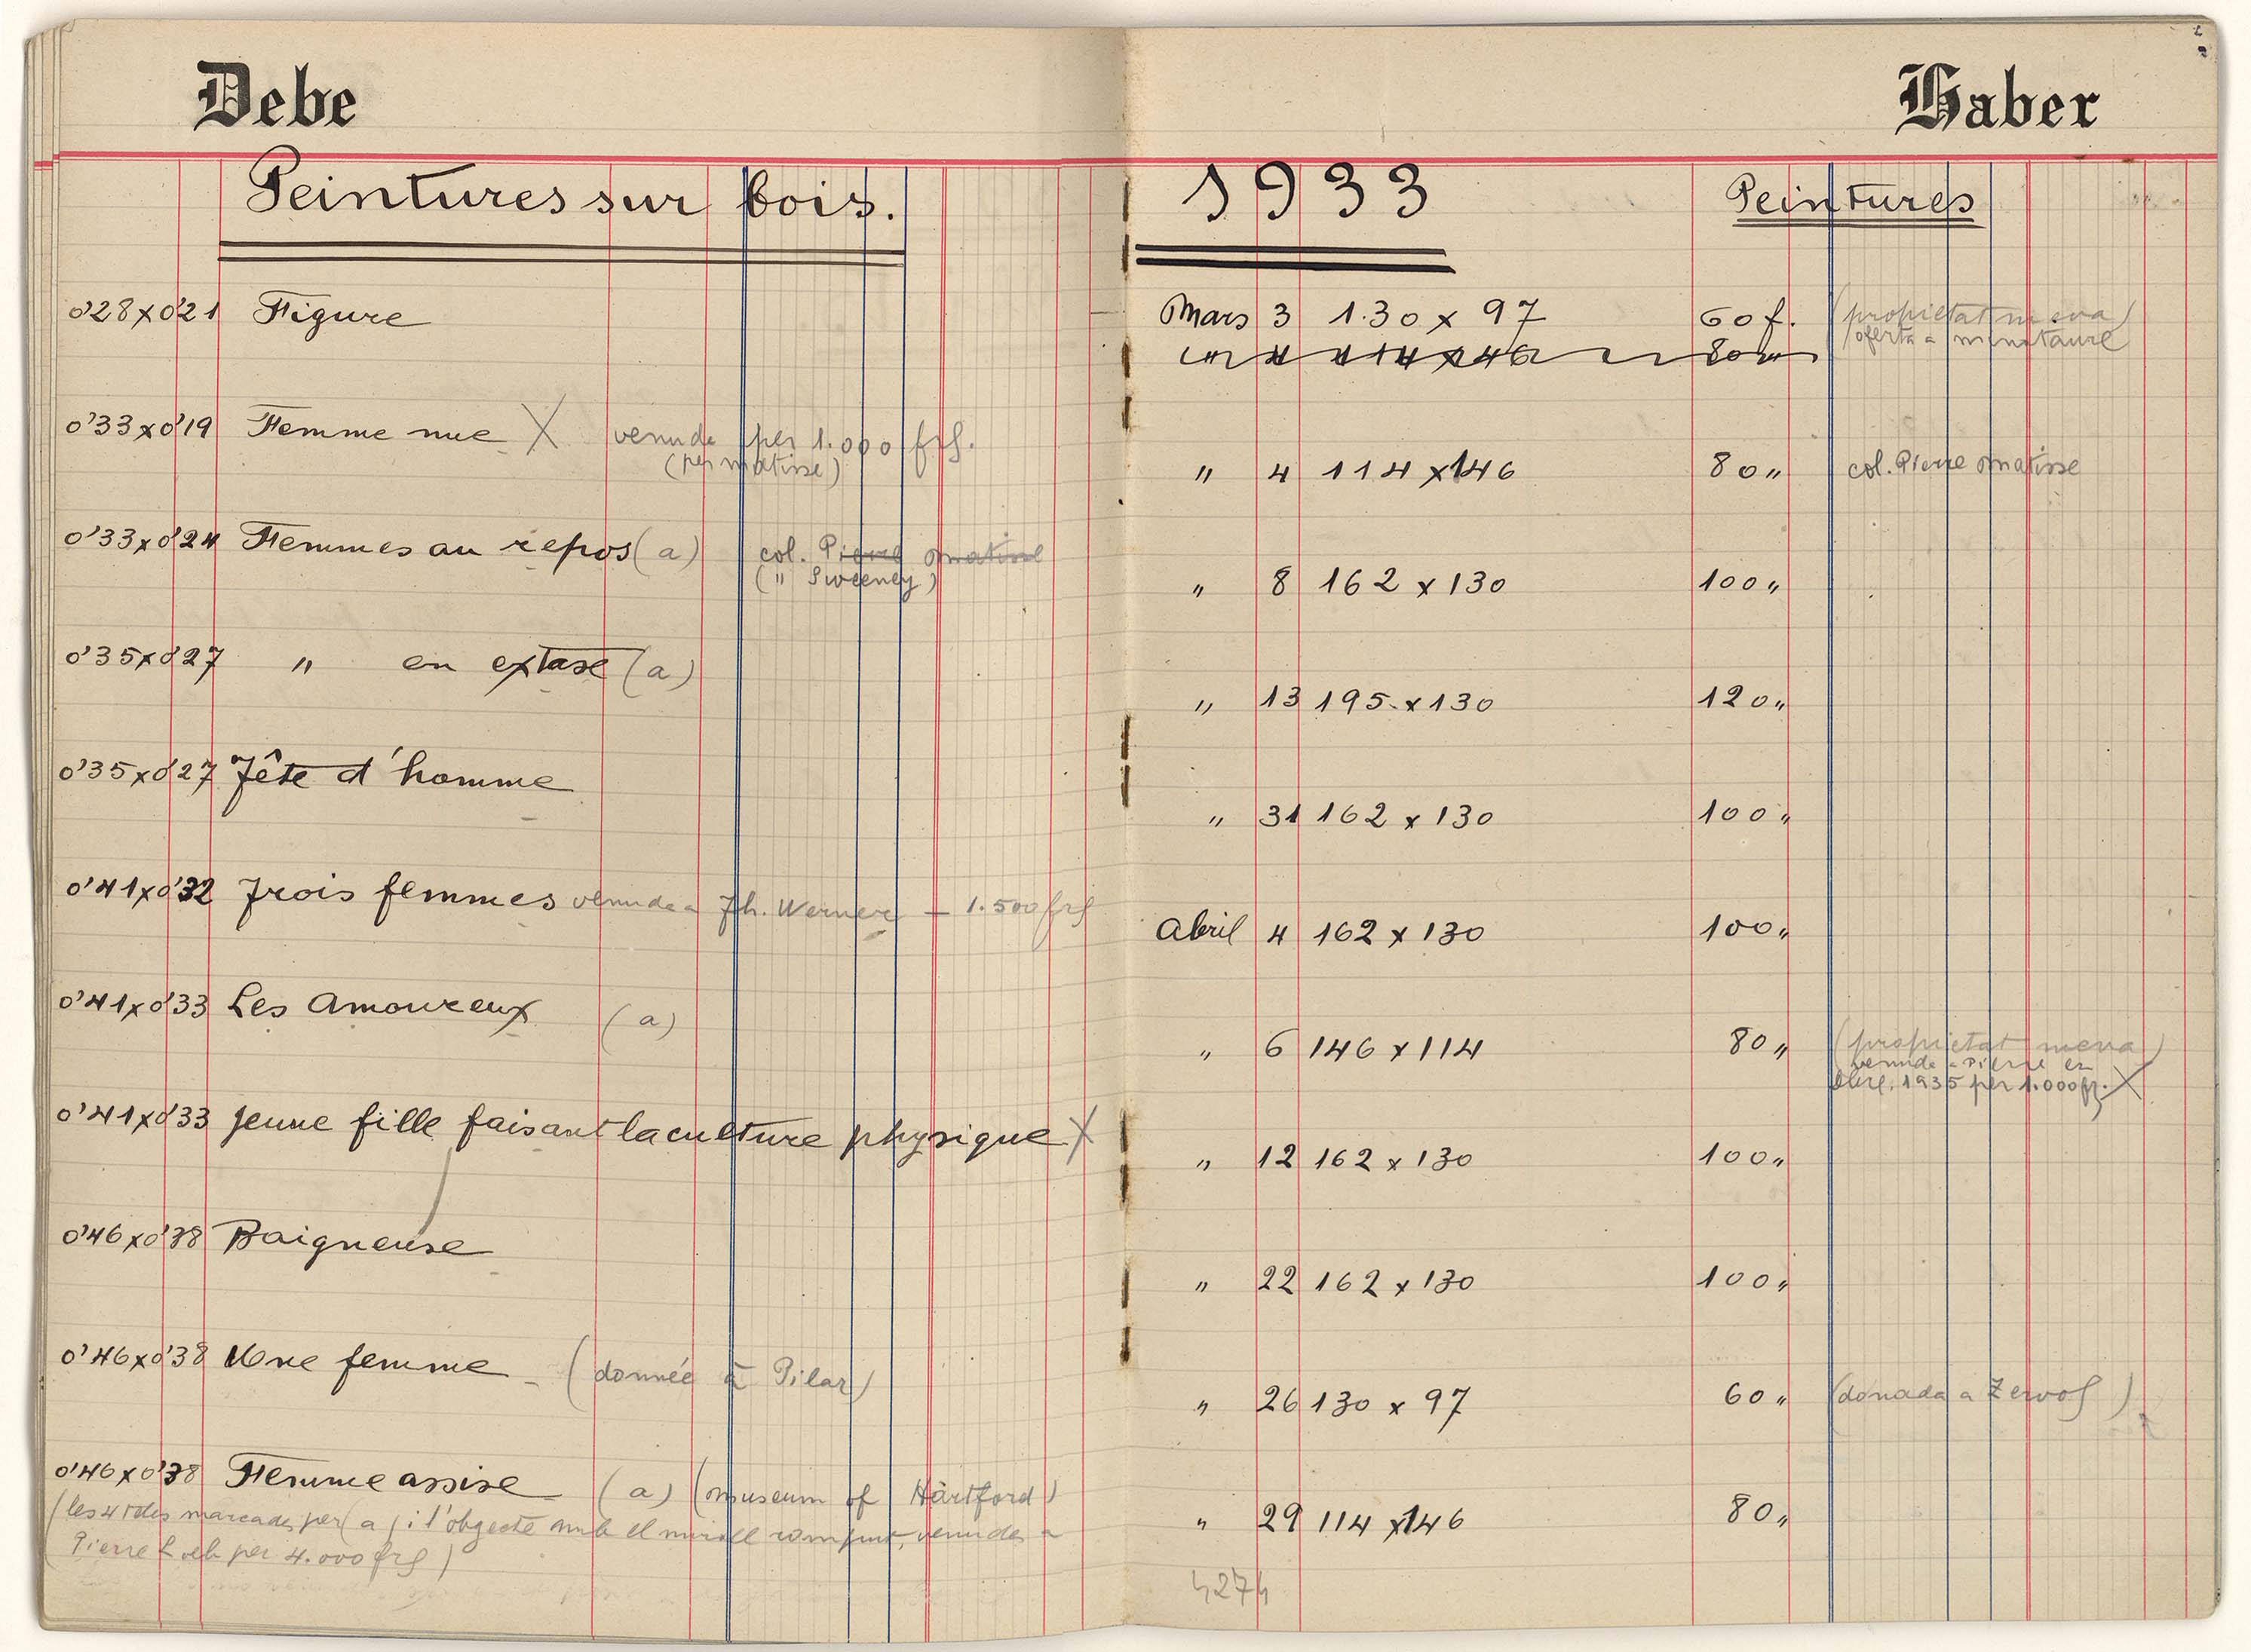 Debe
Peintures sur bois.
0'28x0'21 Figure
0'33x0'19 Femme nue X venuda per 1.000 frs.
(per matisse)
0'33x0'24 Femmes au repos (a) col. Pierre matisse
(" Sweeney)
0'35x0'27 " en extase (a)
0'35x0'27 Tête d'homme
0'41x0'32 Trois femmes venuda a Th. Werner – 1.500 frs
0'41x0'33 Les Amoureux (a)
0'41x0'33 Jeune fille faisant la culture physique X
0'46x0'38 Baigneuse
0'46x0'38 Une femme (donnée à Pilar)
0'46x0'38 Femme assise (a) (museum of Hartford)
(les 4 teles marcades per (a) i l'objecte amb el mirall romput, venudes a
Pierre Loeb per 4.000 frs)
Haber
1933 Peintures
Mars 3 1.30 x 97 60 f. (propietat meva)
oferta a minotaure
" 4 114 x 146 80 "
" 4 114 x 146 80 " col. Pierre matisse
" 8 162 x 130 100 "
" 13 195 x 130 120 "
" 31 162 x 130 100 "
Abril 4 162 x 130 100 "
" 6 146 x 114 80 " (propietat meva)
venuda a Pierre en
1935 per 1.000 fr. X
" 12 162 x 130 100 "
" 22 162 x 130 100 "
" 26 130 x 97 60 " (donada a Zervos)
" 29 114 x 146 80 "
4274